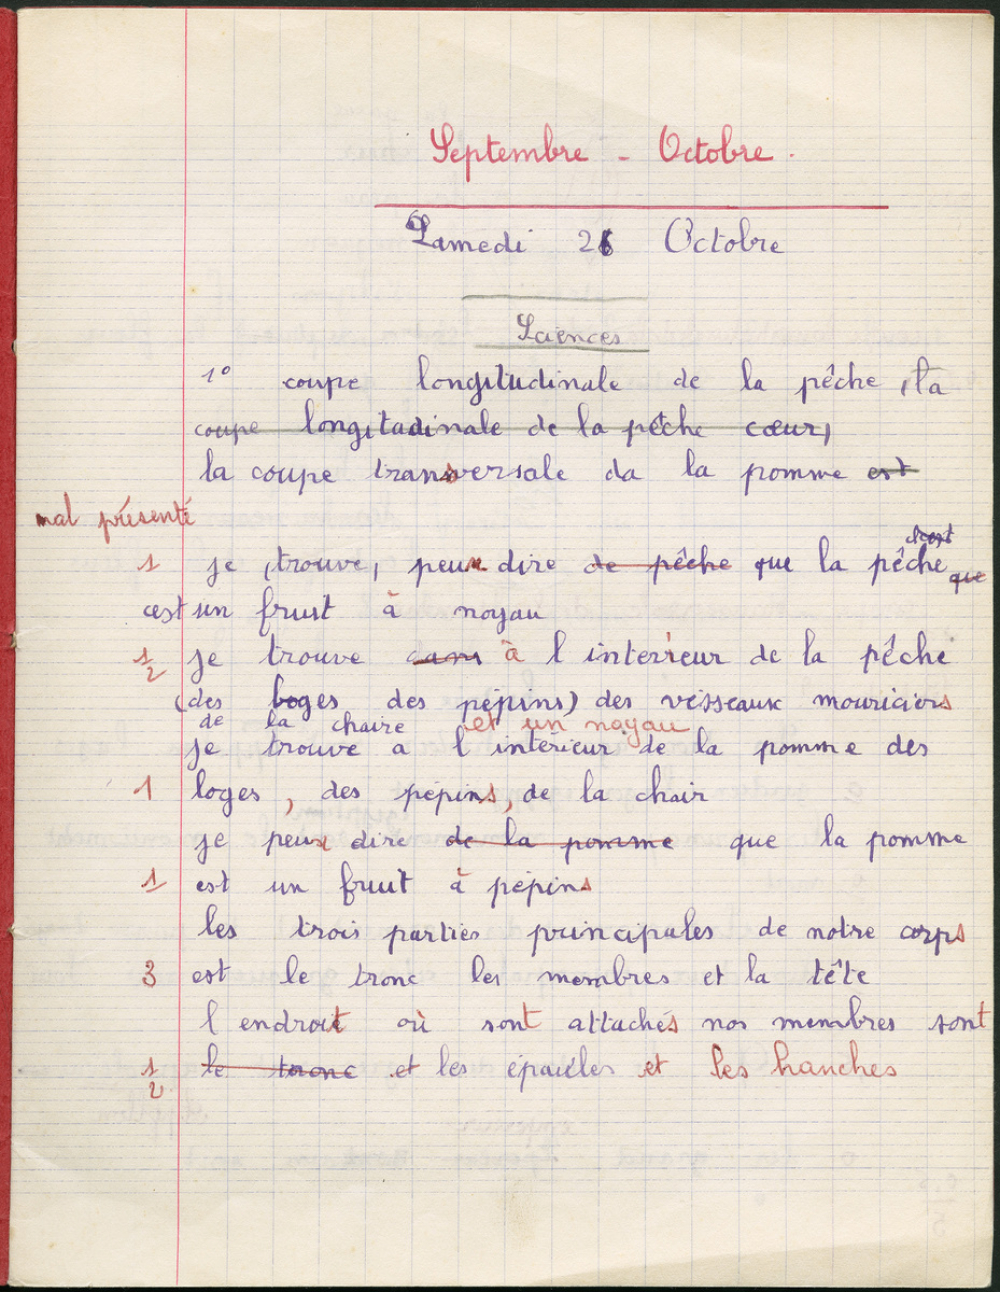 Septembre - Octobre.
Samedi 26 Octobre
Sciences
1° coupe longitudinale de la pêche, la
coupe longitudinale de la pêche cœur,
la coupe transversale da la pomme est
mal présenté
1 je (trouve) peux dire de pêche que la pêche que
c'est un fruit à noyau
1/2 je trouve dans à l intérieur de la pêche
(des loges des pépins) des vesseaux mouriciers
de la chaire et un noyau
je trouve a l intérieur de la pomme des
1 loges, des pépins, de la chair
je peux dire de la pomme que la pomme
1 est un fruit à pépins
les trois parties principales de notre corps
3 est le tronc les membres et la tête
l endroit où sont attachés nos membres sont
1/2 le tronc et les épaules et les hanches